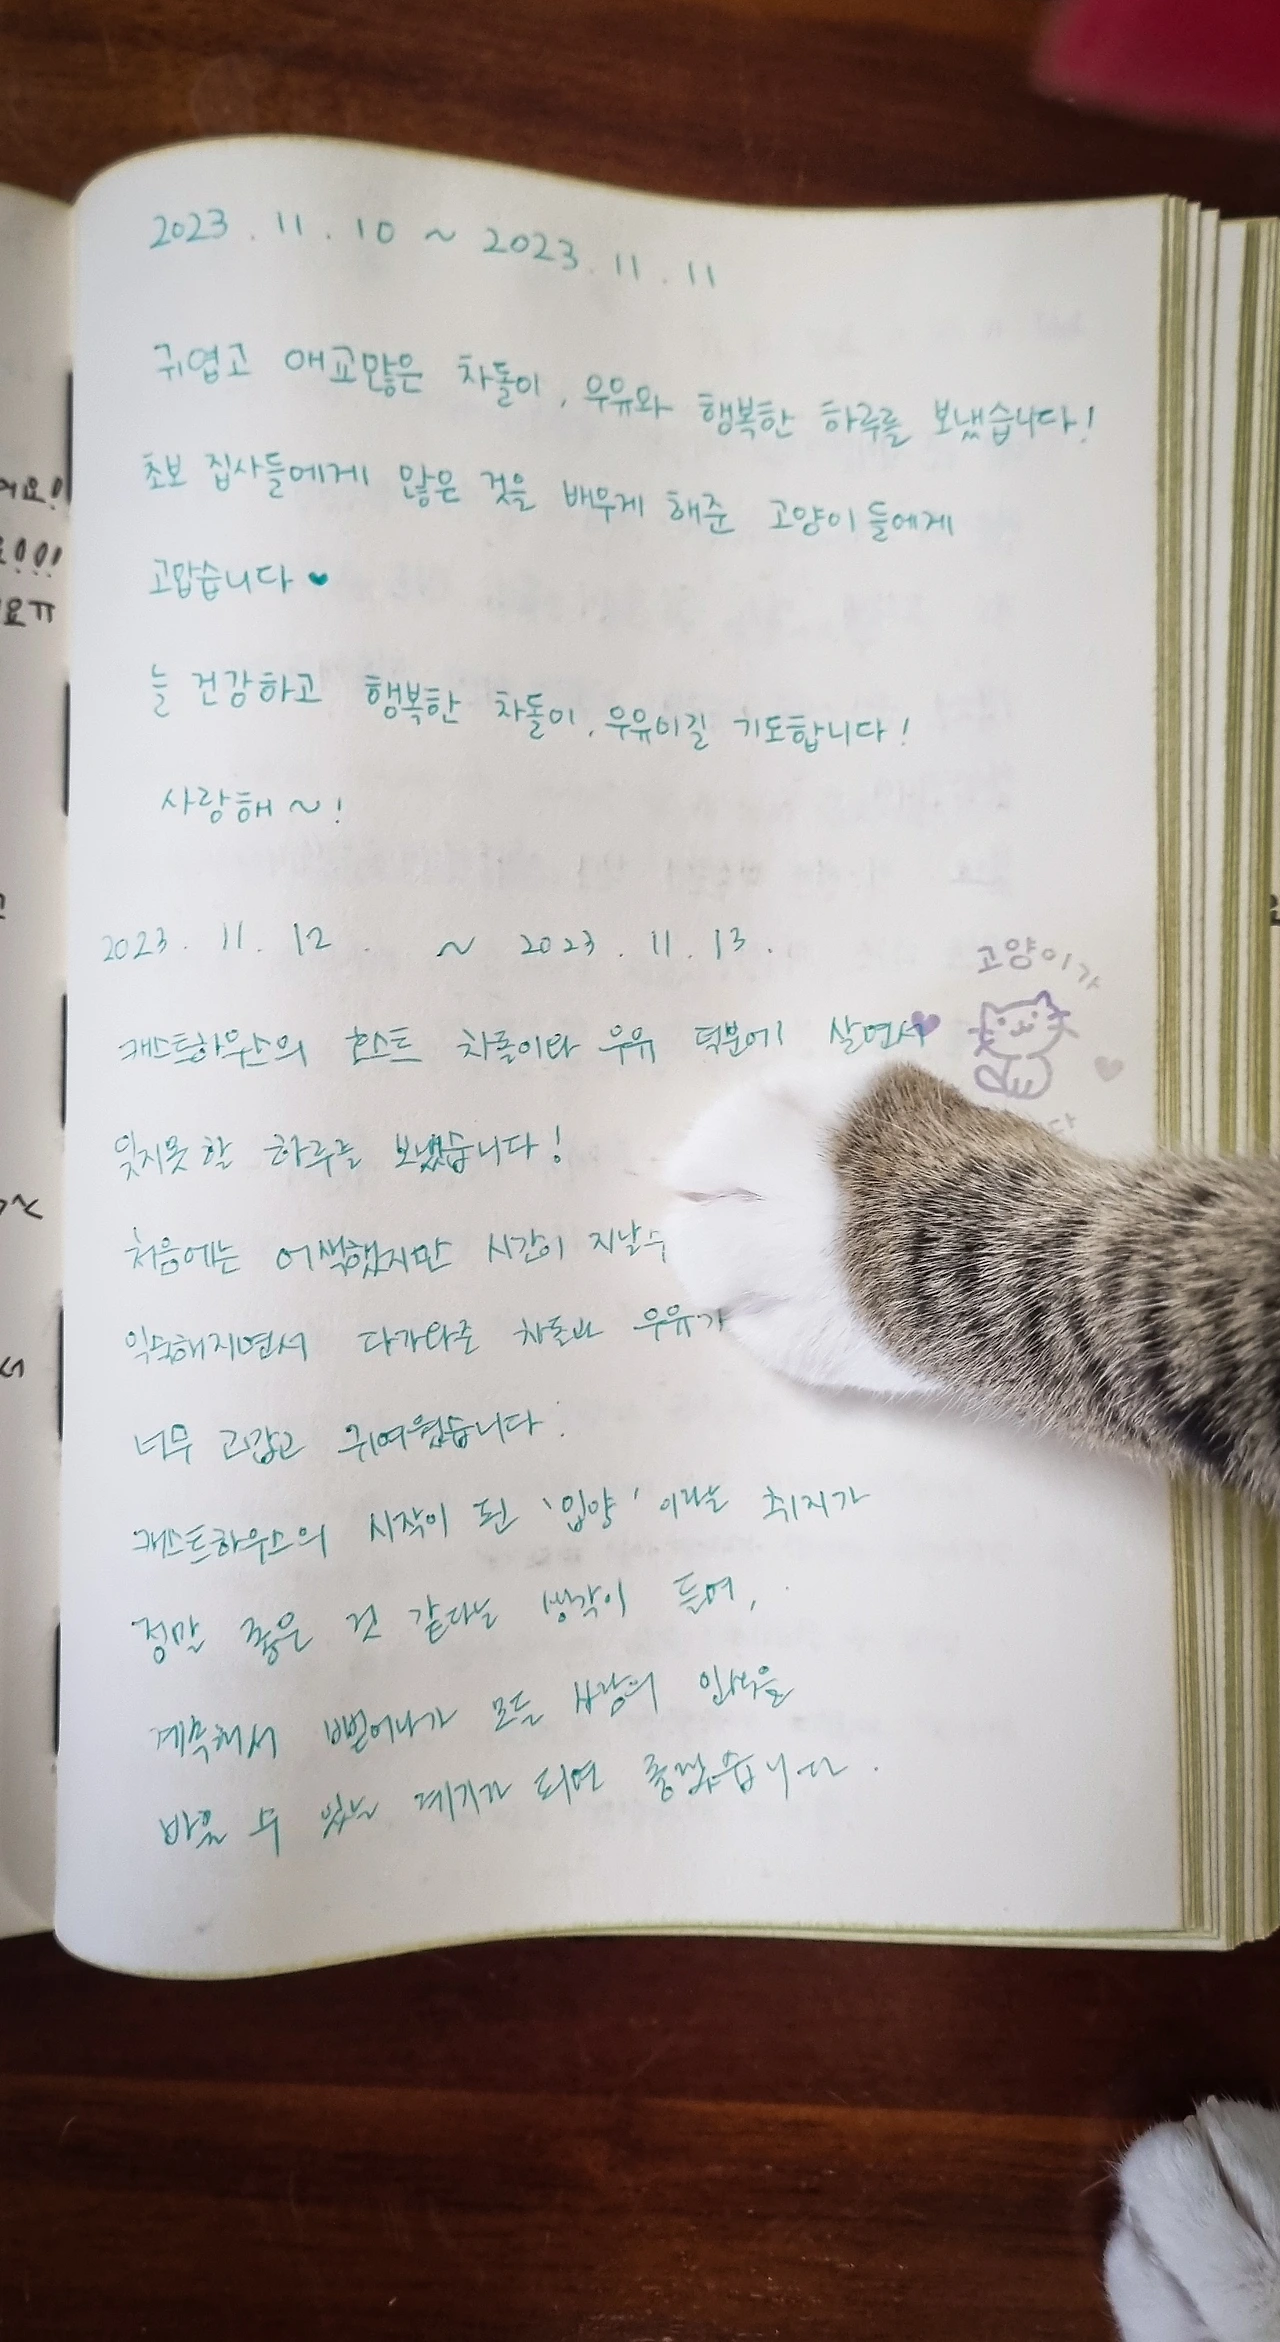 2023. 11. 10 ~ 2023. 11. 11
귀엽고 애교많은 차돌이, 우유와 행복한 하루를 보냈습니다!
초보 집사들에게 많은 것을 배우게 해준 고양이들에게
고맙습니다♥
늘 건강하고 행복한 차돌이, 우유이길 기도합니다!
사랑해~!
2023. 11. 12. ~ 2023. 11. 13.
고양이가
캐스트하우스의 호스트 차돌이와 우유 덕분에 살면서
잊지못할 하루를 보냈습니다!
처음에는 어색했지만 시간이 지날수
익숙해지면서 다가와준 차돌과 우유가
너무 고맙고 귀여웠습니다.
캐스트하우스의 시작이 된 '입양' 이라는 취지가
정말 좋은 것 같다는 생각이 들어,
계속해서 뻗어나가 모든 사랑의
받을 수 있는 계기가 되면 좋겠습니다.
어요!
요!!!
요ㅠ
서